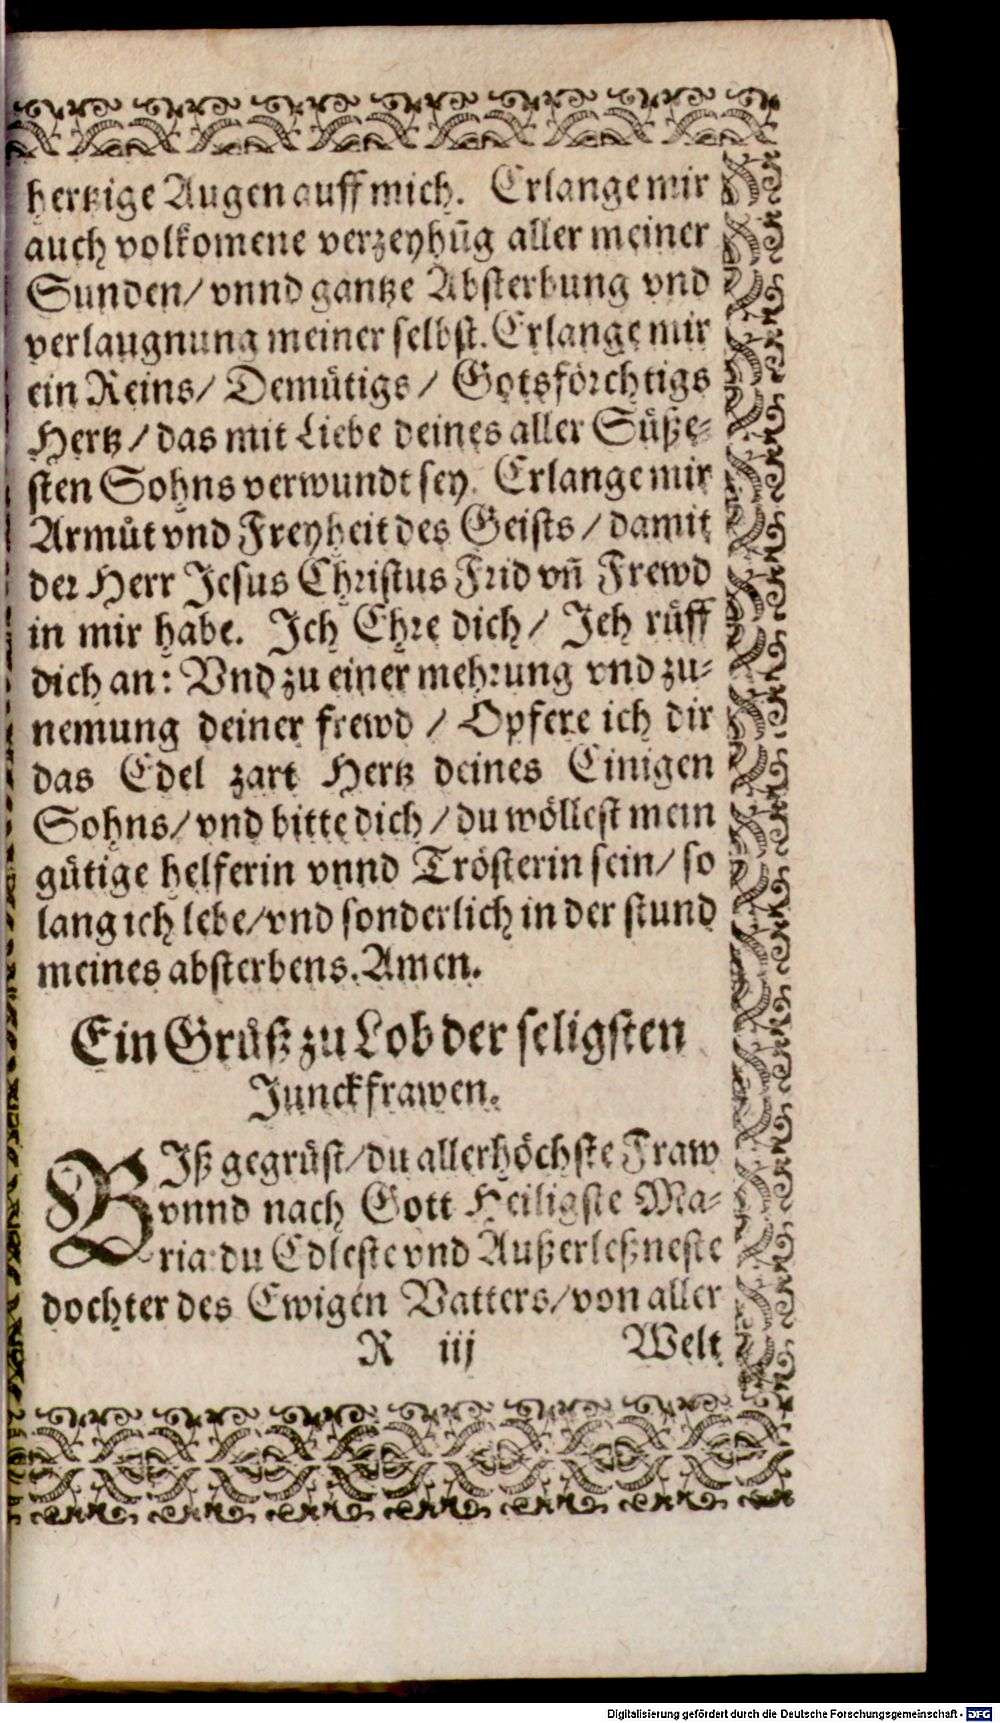 hertzige Augen auff mich. Erlange mir
auch volkomene verzeyhūg aller meiner
Sunden/ vnnd gantze Absterbung vnd
verlaugnung meiner selbst. Erlange mir
ein Reins/ Demütigs/ Gotsförchtigs
Hertz/ das mit Liebe deines aller Süße-
sten Sohns verwundt sey. Erlange mir
Armůt vnd Freyheit des Geists/ damit
der Herr Jesus Christus Frid vñ Frewd
in mir habe. Ich Ehre dich/ Jeh růff
dich an: Vnd zu einer mehrung vnd zu-
nemung deiner frewd/ Opfere ich dir
das Edel zart Hertz deines Einigen
Sohns/ vnd bitte dich/ du wöllest mein
gütige helferin vnnd Trösterin sein/ so
lang ich lebe/ vnd sonderlich in der stund
meines absterbens. Amen.
Ein Grůß zu Lob der seligsten
Junckfrawen.
BIß gegrüst/ du allerhöchste Fraw
vnnd nach Gott Heiligste Ma-
ria: du Edleste vnd Außerleßneste
dochter des Ewigen Vatters/ von aller
R iij Welt
Digitalisierung gefördert durch die Deutsche Forschungsgemeinschaft - DFG